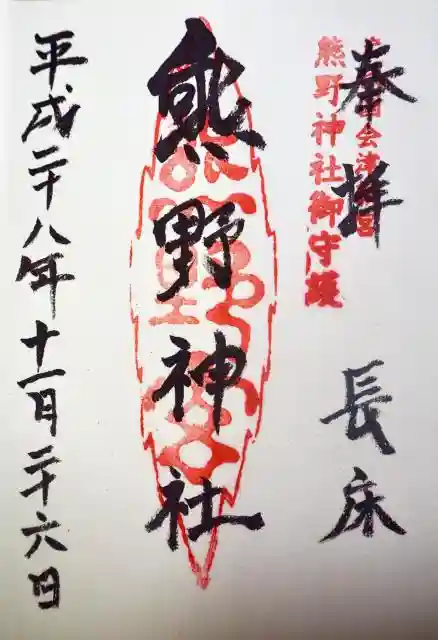 奉拝
会津
熊野神社御守護
長床
熊野神社
平成二十八年十一月二十六日